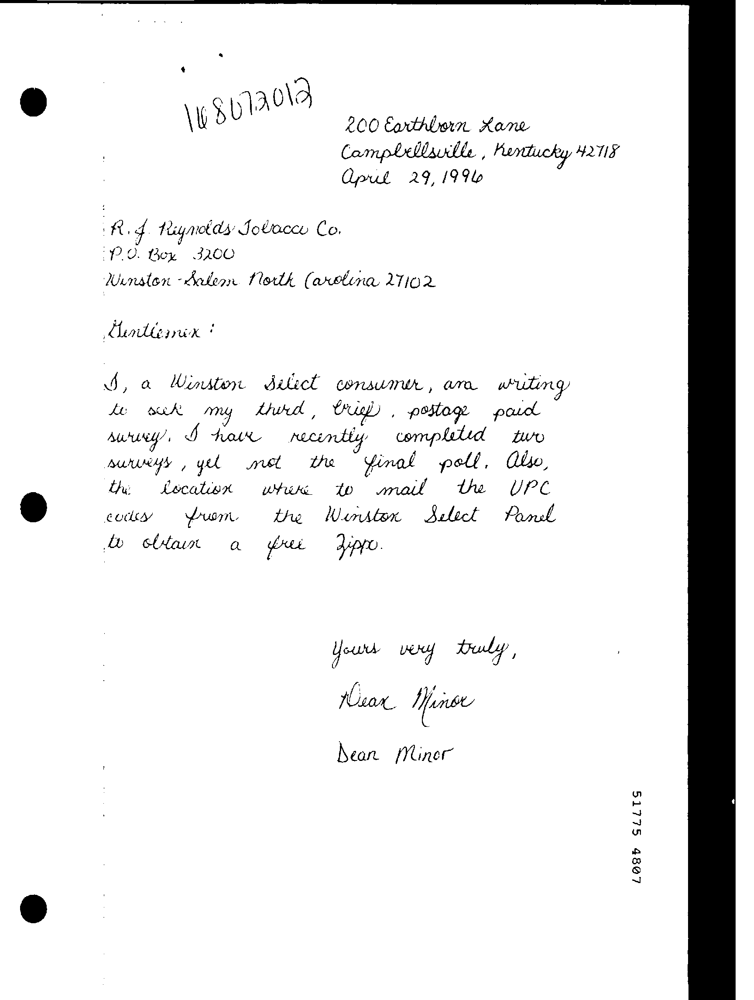 168072012
200 Earthborn Lane
Campbellsville, Kentucky 42718
April 29, 1996
R.J. Reynolds Tobacco Co.
P.O. Box 3200
Winston-Salem North Carolina 27102
Gentlemen:
I, a Winston Select consumer, am writing
to seek my third, brief, postage paid
survey. I have recently completed two
surveys, yet not the final poll. Also,
the location where to mail the UPC
codes from the Winston Select Panel
to obtain a free Zippo.
Yours very truly,
Dean Minor
Dean Minor
51775 4807